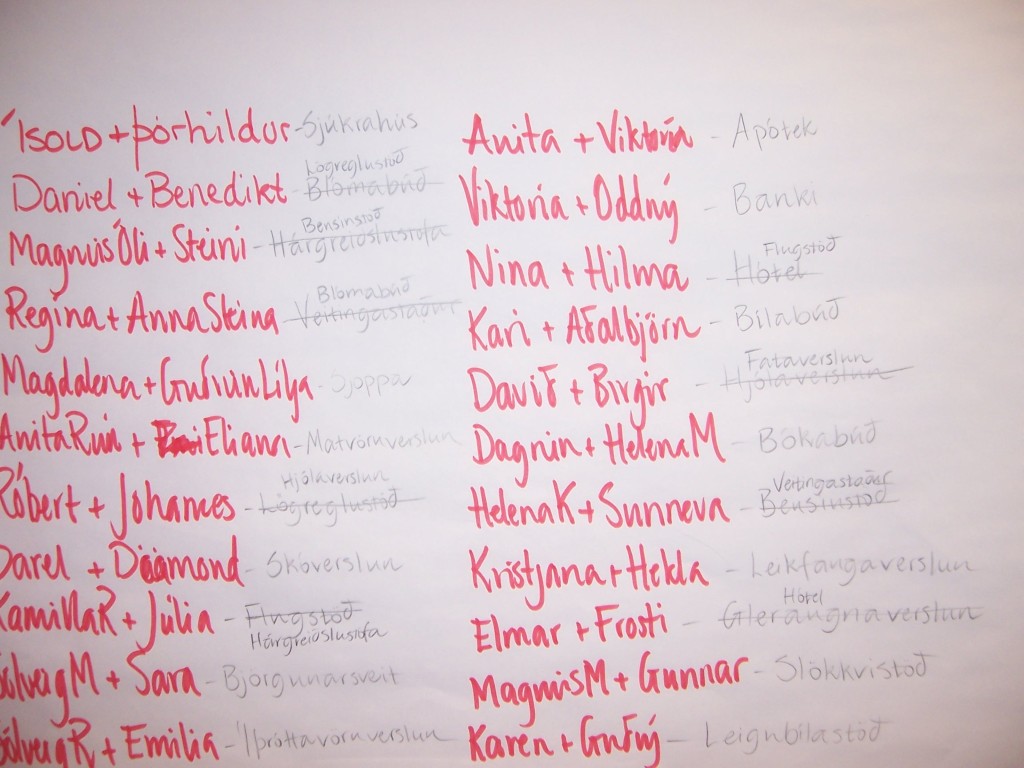 Ísold + Þórhildur - Sjúkrahús
Lögreglustöð
Daniel + Benedikt - Blómabúð
Bensinstöð
Magnús Óli + Steini - Hárgreiðslustofa
Blómabúð
Regina + Anna Steina - Veitingastaður
Magdalena + Guðrún Lilja - Sjoppa
Anita Rún + Eliann - Matvörnverslun
Hjólaverslun
Róbert + Jóhannes - Lögreglustöð
Darel + Diamond - Skóverslun
Kamilla R + Júlía - Flugstöð
Hárgreiðslustofa
Sólveig M + Sara - Björgunarsveit
Sólveig R + Emilia - Íþróttavörnverslun
Anita + Viktoría - Apótek
Viktoria + Oddný - Banki
Flugstöð
Nina + Hilma - Hótel
Kari + Aðalbjörn - Bílabúð
Fataverslun
Davið + Birgir - Hjólaverslun
Dagnín + Helena M - Bókabúð
Veitingastaður
Helena K + Sunneva - Bensinstöð
Kristjana + Hekla - Leikfangaverslun
Hótel
Elmar + Frosti - Gleraugnaverslun
Magnús M + Gunnar - Slökkvistöð
Karen + Guðný - Leigubílastöð